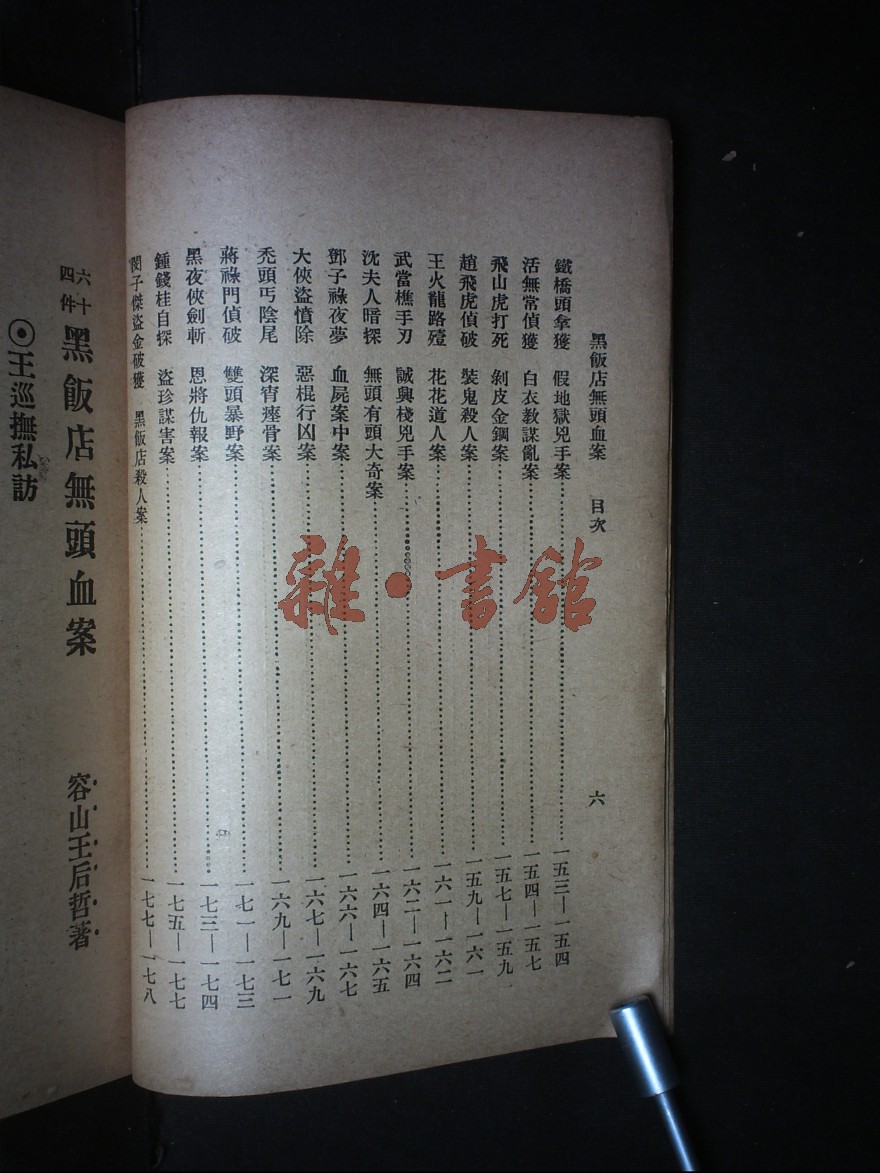 黑飯店無頭血案 目次 六
鐵橋頭拿獲 假地獄兇手案…一五三—一五四
活無常偵獲 白衣教謀亂案…一五四—一五七
飛山虎打死 剝皮金鋼案…一五七—一五九
趙飛虎偵破 裝鬼殺人案…一五九—一六一
王火龍路殪 花花道人案…一六一—一六二
武當樵手刃 誠興棧兇手案…一六二—一六四
沈夫人暗探 無頭有頭大奇案…一六四—一六五
鄧子祿夜夢 血屍案中案…一六六—一六七
大俠盜憤除 惡棍行凶案…一六七—一六九
禿頭丐陰尾 深宵瘞骨案…一六九—一七一
蔣祿門偵破 雙頭暴野案…一七一—一七三
黑夜俠劍斬 恩將仇報案…一七三—一七四
鍾錢桂自探 盜珍謀害案…一七五—一七七
閔子傑盜金破獲 黑飯店殺人案…一七七—一七八
六十四件 黑飯店無頭血案 容山王后哲著
⊙王巡撫私訪
雜·書館